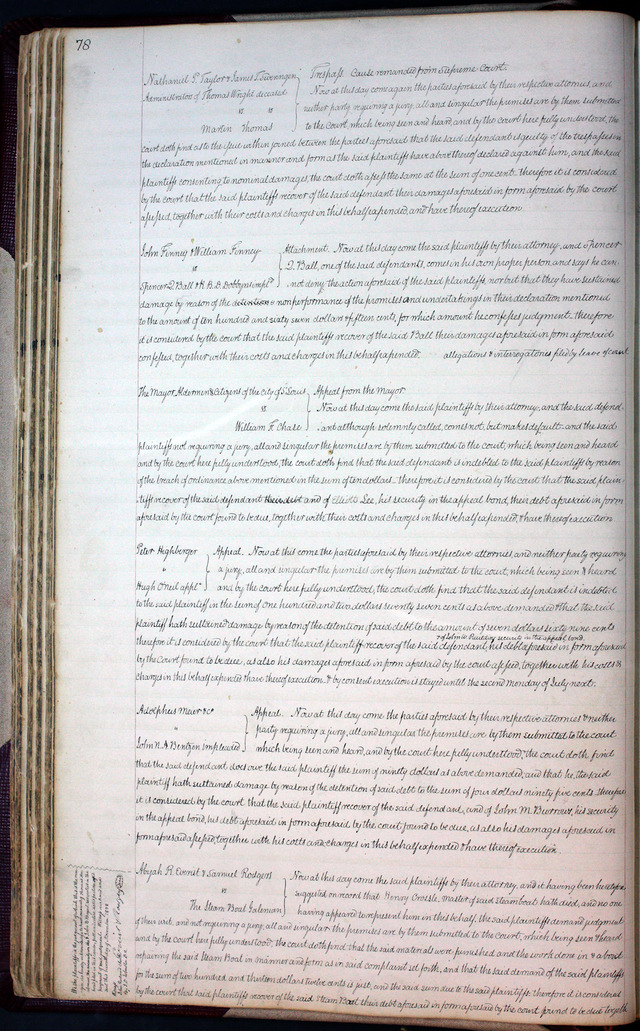 78
Nathaniel P. Taylor & James T. Swearingen } Trespass. Cause remanded from Supreme Court.
Administrators of Thomas Wright deceased } Now at this day come again the parties aforesaid by their respective attornies, and
vs } neither party requiring a jury, all and singular the premises are by them submitted
Martin Thomas } to the Court, which being seen and heard, and by the court here fully understood, the
court doth find as to the issue within joined between the parties aforesaid that the said defendant is guilty of the trespasses in
the declaration mentioned in manner and form as the said plaintiffs have above thereof declared against him, and the said
plaintiffs consenting to nominal damages, the court doth assess the same at the sum of one cent. therefore it is considered
by the court that the said plaintiffs recover of the said defendant their damages aforesaid in form aforesaid by the court
assessed, together with their costs and charges in this behalf expended, and have thereof execution.
John Finney & William Finney } Attachment. Now at this day come the said plaintiffs by their attorney, and Spencer
vs } J. Ball, one of the said defendants, comes in his own proper person, and says he can-
Spencer J. Ball & R. B. D. Dobbyns impld } not deny the action aforesaid of the said plaintiffs, nor but that they have sustained
damage by reason of the detention & nonperformance of the promises and undertakings in their declaration mentioned
to the amount of ten hundred and sixty seven dollars & fifteen cents, for which amount he confesses judgment. therefore
it is considered by the court that the said plaintiffs recover of the said Ball their damages aforesaid in form aforesaid
confessed, together with their costs and charges in this behalf expended. allegations & interrogatories filed by leave of court.
The Mayor Aldermen & Citizens of the city of St. Louis } Appeal from the Mayor.
vs } Now at this day come the said plaintiffs by their attorney, and the said defend-
William F. Chase } ant although solemnly called, comes not, but makes default: and the said
plaintiffs not requiring a jury, all and singular the premises are by them submitted to the court, which being seen and heard
and by the court here fully understood, the court doth find that the said defendant is indebted to the said plaintiffs by reason
of the breach of ordinance above mentioned in the sum of ten dollars. therefore it is considered by the court that the said plain-
tiffs recover of the said defendant their debt and of Elliott Lee, his security in the appeal bond, their debt aforesaid in form
aforesaid by the court found to be due, together with their costs and charges in this behalf expended, & have thereof execution
Peter Highberger } Appeal. Now at this come the parties aforesaid by their respective attornies and neither party requiring
vs } a jury, all and singular the premises are by them submitted to the court, which being seen & heard
Hugh O'neil applt } and by the court here fully understood, the court doth find that the said defendant is indebted
to the said plaintiff in the sum of one hundred and two dollars seventy seven cents as above demanded & that the said
plaintiff hath sustained damage by reason of the detention of said debt to the amount of seven dollars sixty nine cents
& of John security in the appeal bond
therefore it is considered by the court that the said plaintiff recover of the said defendant, his debt aforesaid in form aforesaid
by the court found to be due, as also his damages aforesaid in form aforesaid by the court assessed, together with his costs &
charges in this behalf expended & have thereof execution. & by consent execution is stayed until the second monday of July next.
Adolphus Meier & Co } Appeal. Now at this day come the parties aforesaid by their respective attornies & neither
vs } party requiring a jury, all and singular the premises are by them submitted to the court
John N. A. Bentzen impleaded } which being seen and heard, and by the court here fully understood, the court doth find
that the said defendant does owe the said plaintiff the sum of ninety dollars as above demanded, and that he, the said
plaintiff hath sustained damage by reason of the detention of said debt to the sum of four dollars ninety five cents. therefore
it is considered by the court that the said plaintiff recover of the said defendant, and of John M. Burrows, his security
in the appeal bond, his debt aforesaid in form aforesaid by the court found to be due, as also his damages aforesaid in
form aforesaid assessed, together with his costs and charges in this behalf expended & have thereof execution
Abijah R. Everist & Samuel Rodgers } Now at this day come the said plaintiffs by their attorney, and it having been heretofore
vs } suggested on record that Henry Croisle, master of said steamboat hath died, and no one
The Steam Boat Galenian } having appeared to represent him in this behalf, the said plaintiffs demand judgment
of their suit, and not requiring a jury, all and singular the premises are by them submitted to the Court, which being seen & heard
and by the court here fully understood: the court doth find that the said materials were furnished and the work done in & about
repairing the said Steam Boat in manner and form as in said complaint set forth, and that the said demand of the said plaintiffs
for the sum of two hundred and thirteen dollars twelve cents is just, and the said sum due to the said plaintiffs. therefore it is considered
by the court that said plaintiffs recover of the said Steam Boat their debt aforesaid in form aforesaid by the court found to be due togeth